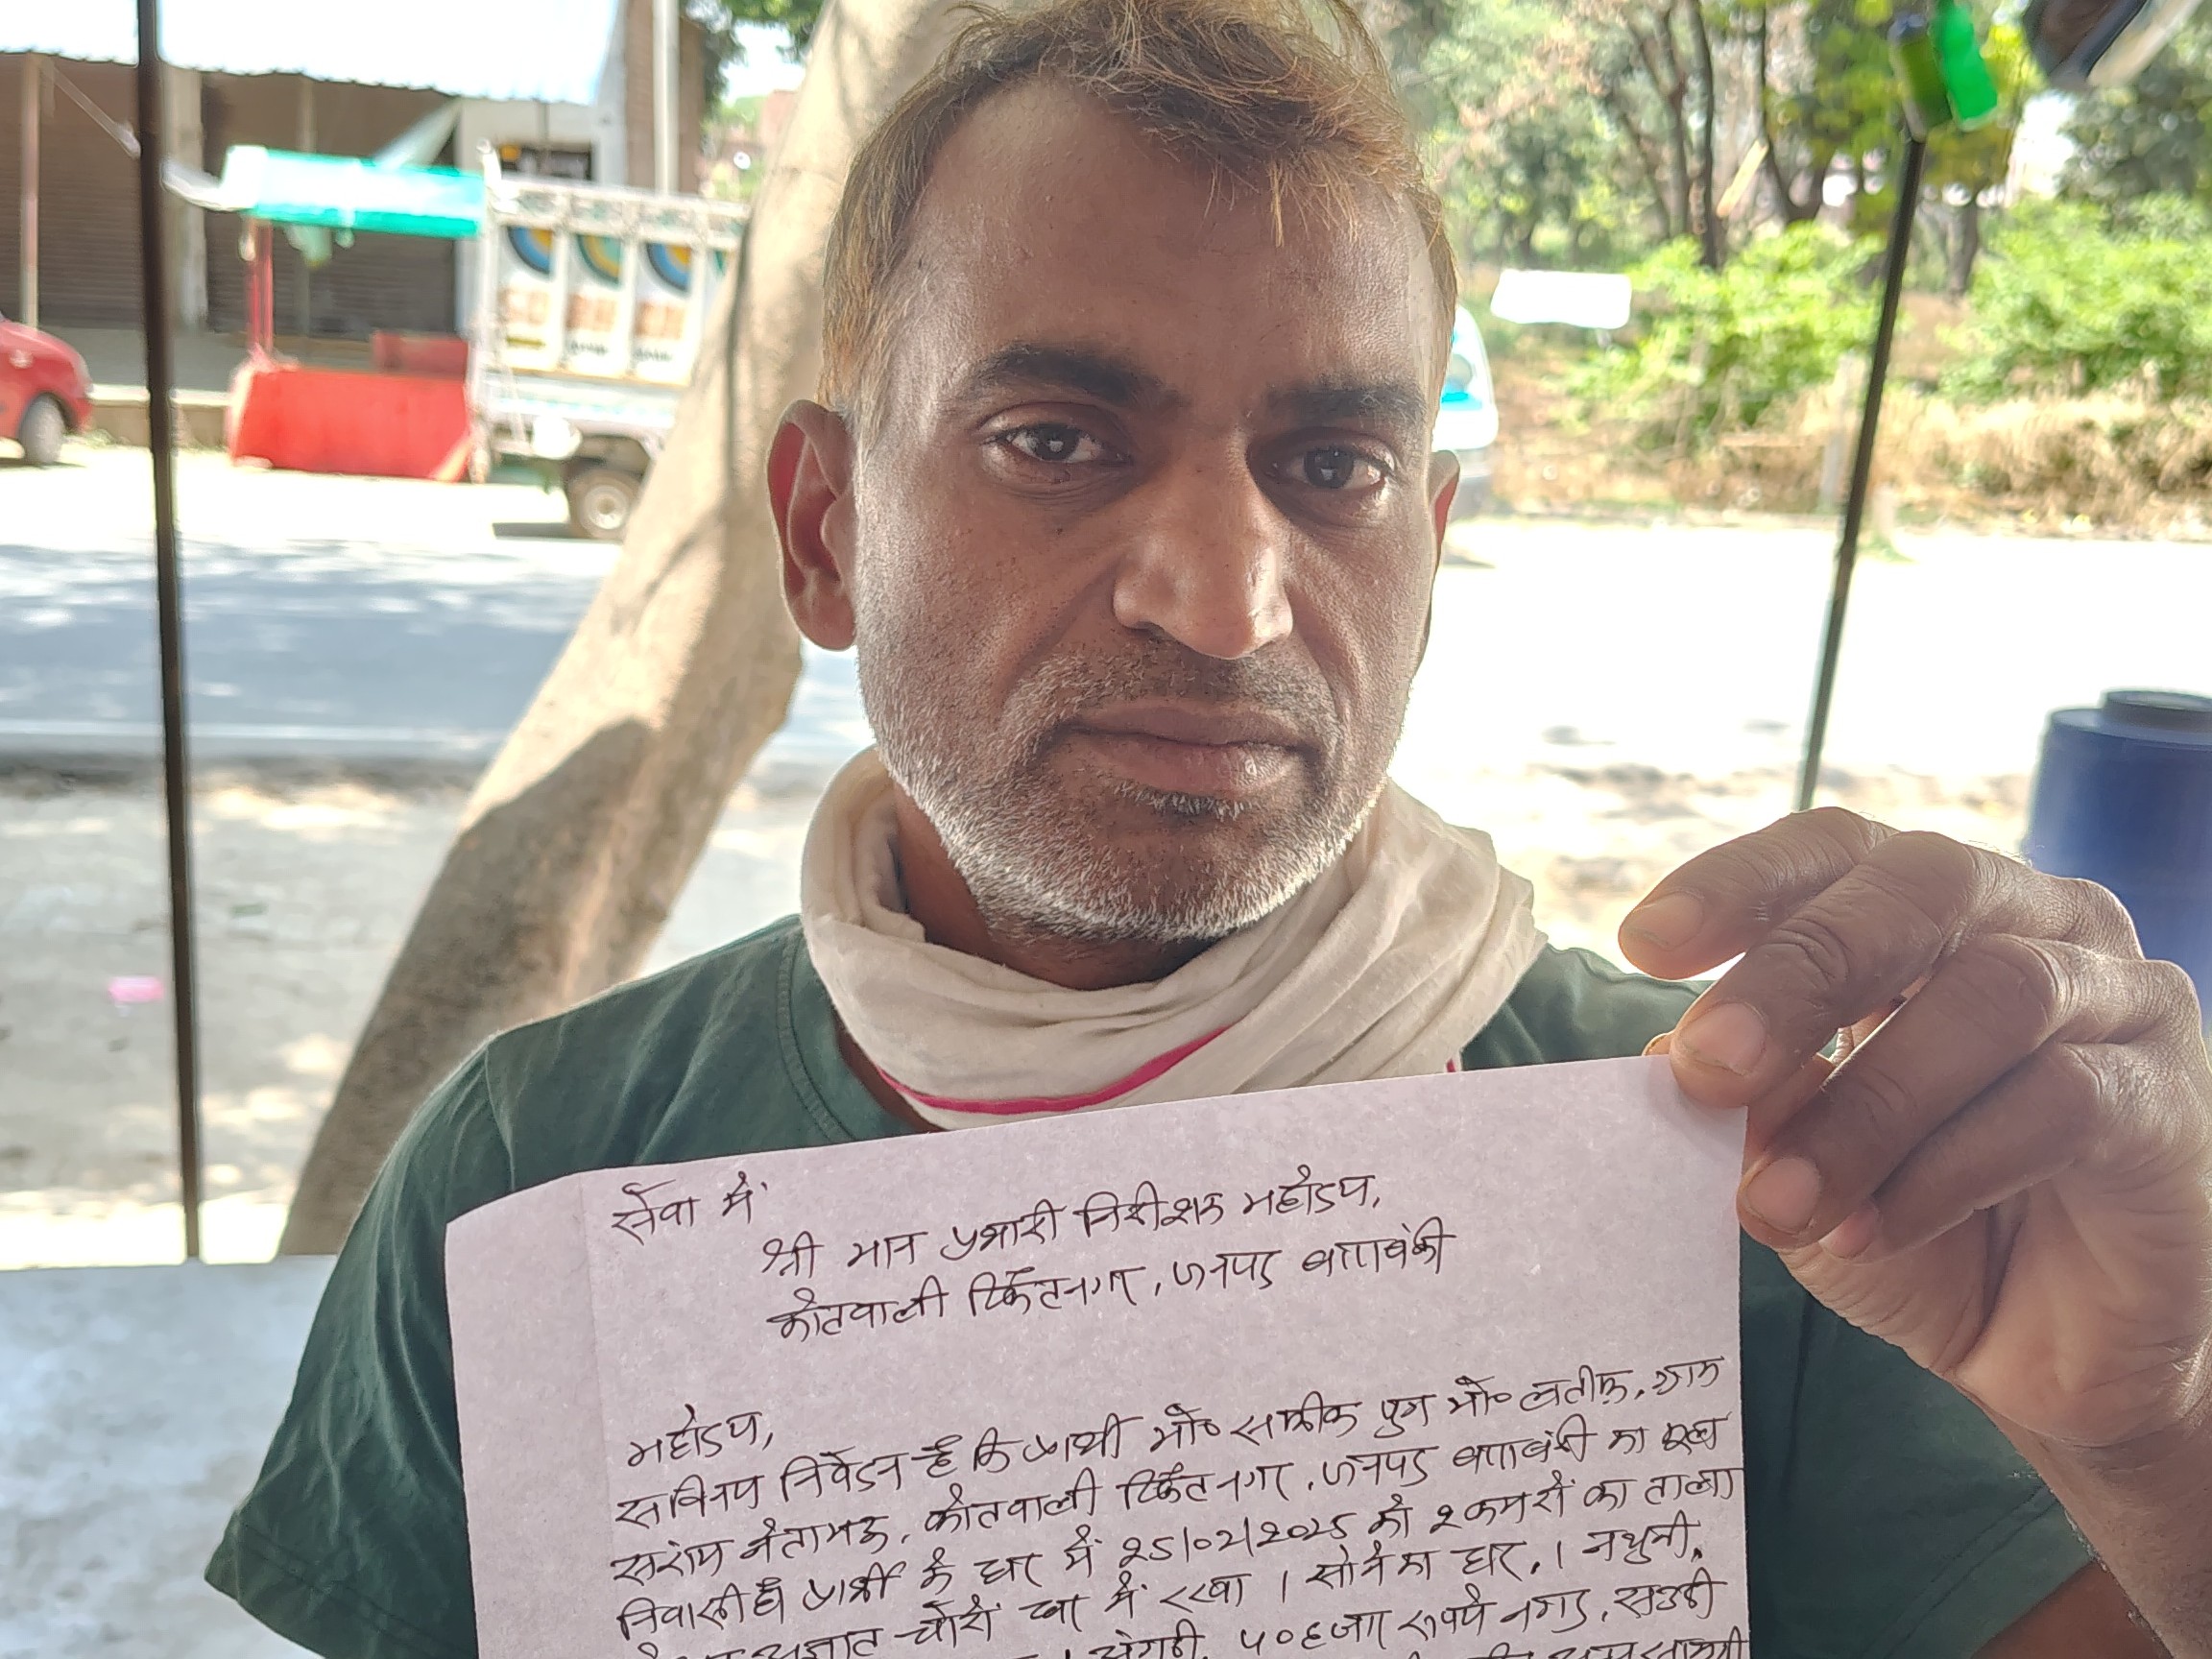 सेवा में
श्री मान प्रभारी निरीक्षक महोदय,
कोतवाली टिकैतनगर, जनपद बाराबंकी
महोदय,
सविनय निवेदन है कि प्रार्थी मो० सफीक पुत्र मो० लतीफ, ग्राम
सराय नेतामऊ, कोतवाली टिकैतनगर, जनपद बाराबंकी का
निवासी है प्रार्थी के घर में 25/02/2025 को 2 कमरों का ताला
अज्ञात चोरों घर में रखा । सोने का हार, । नथुनी,
। अंगूठी, ५० हजार रूपये नगद, सऊदी